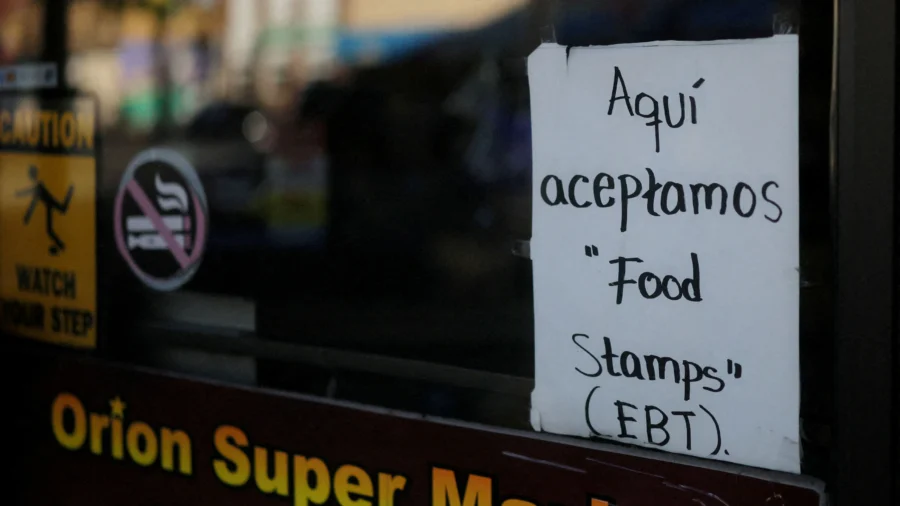 CAUTION
WATCH
YOUR STEP
Aquí
aceptamos
"Food
Stamps"
(EBT).
Orion Super